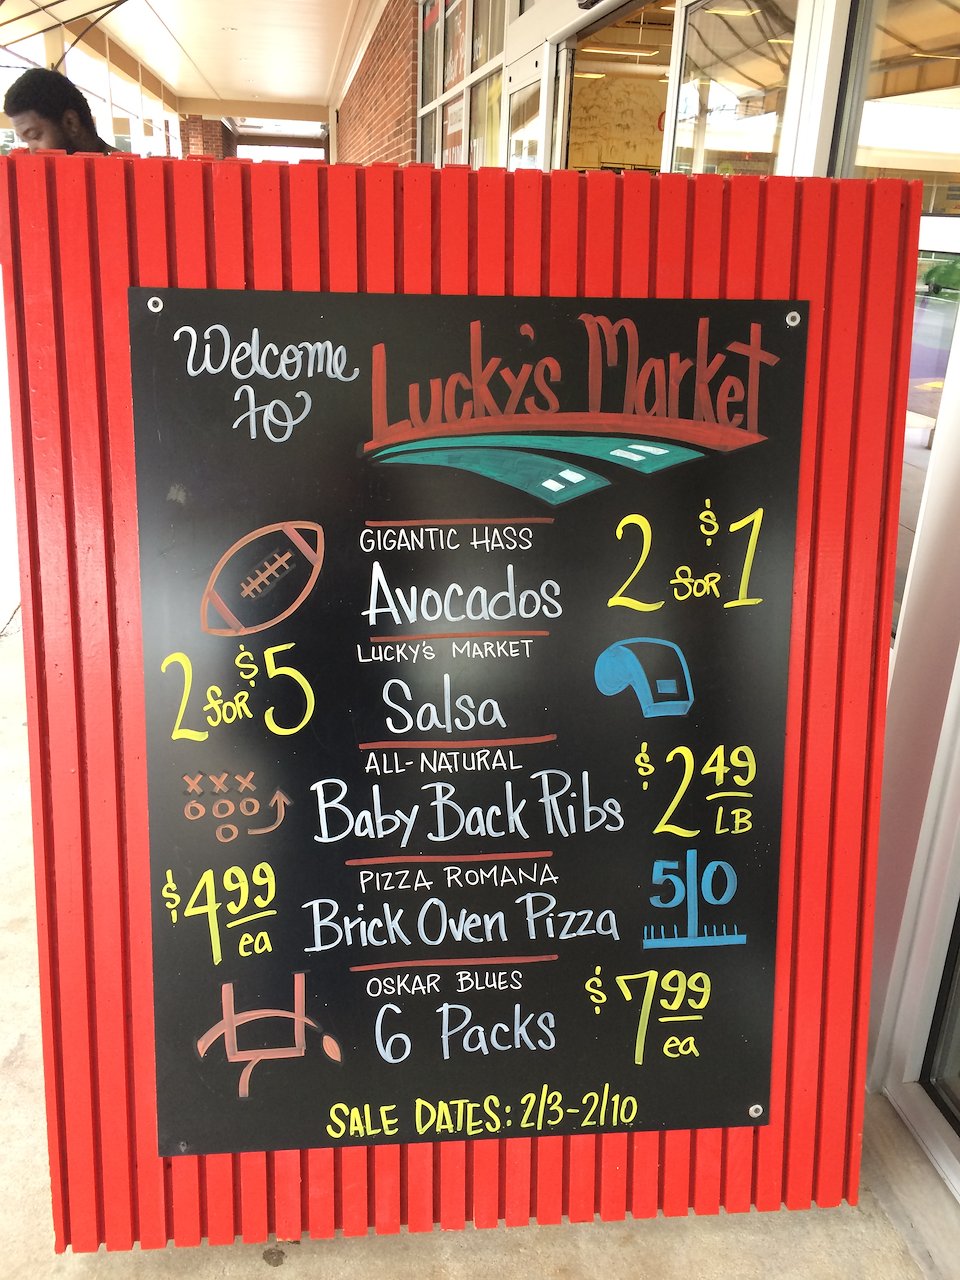 Welcome to
Lucky's Market
GIGANTIC HASS
Avocados
2 for $1
LUCKY'S MARKET
Salsa
2 for $5
ALL-NATURAL
Baby Back Ribs
$2 49 LB
XXX
OOO
O
PIZZA ROMANA
Brick Oven Pizza
$4 99 ea
50
OSKAR BLUES
6 Packs
$7 99 ea
SALE DATES: 2/3-2/10